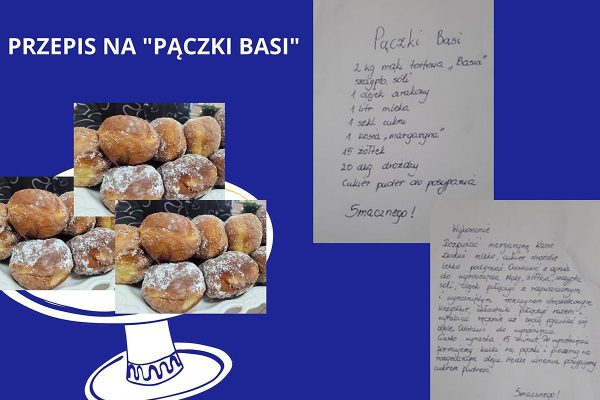 PRZEPIS NA "PĄCZKI BASI"
Pączki Basi
2 kg mąki tortowa „Basia"
szczypta soli
1 olejek arakowy
1 litr mleka
1 szkl cukru
1 kasia „margaryna"
15 żółtek
20 dkg drożdży
Cukier puder do posypania
Smacznego!
Wykonanie
Rozpuścić margarynę Kasię
Dodać mleko, cukier drożdże
lekko podgrzać Odstawić z ognia
do wyrośnięcia. Mąkę, żółtka, szczyptę
soli, olejek połączyć z rozpuszczonym
i wyrośniętym rozczynem drożdżowym
Wszystkie składniki połączyć razem i
wyrabiać ręcznie aż zaczną pojawiać się
Odstawić do wyrośnięcia.
Ciasto wyrasta 15 minut. Po wyrośnięciu
formujemy kulki na pączki i pieczemy na
rozgrzanym oleju. Wedle uznania posypujemy
cukrem pudrem
Smacznego!